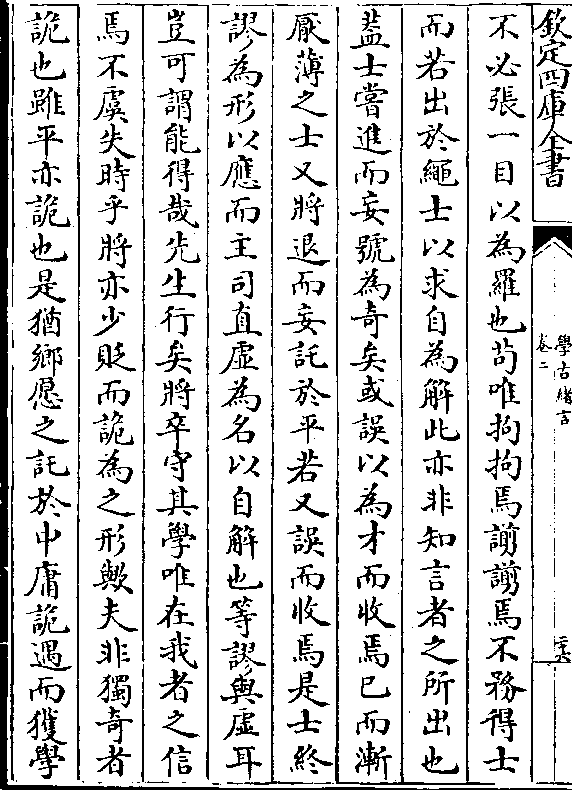 欽定四庫全書
學古緒言
卷二
二六
不必張一目以為羅也苟唯拘拘焉謭謭焉不務得士
而若出於繩士以求自為解此亦非知言者之所出也
葢士嘗進而妄號為奇矣或誤以為才而收焉已而漸
厭薄之士又將退而妄託於平若又誤而收焉是士終
謬為形以應而主司直虛為名以自解也等謬與虛耳
豈可謂能得哉先生行矣將卒守其學唯在我者之信
焉不虞失時乎將亦少貶而詭為之形歟夫非獨奇者
詭也雖平亦詭也是猶鄉愿之託於中庸詭遇而獲學